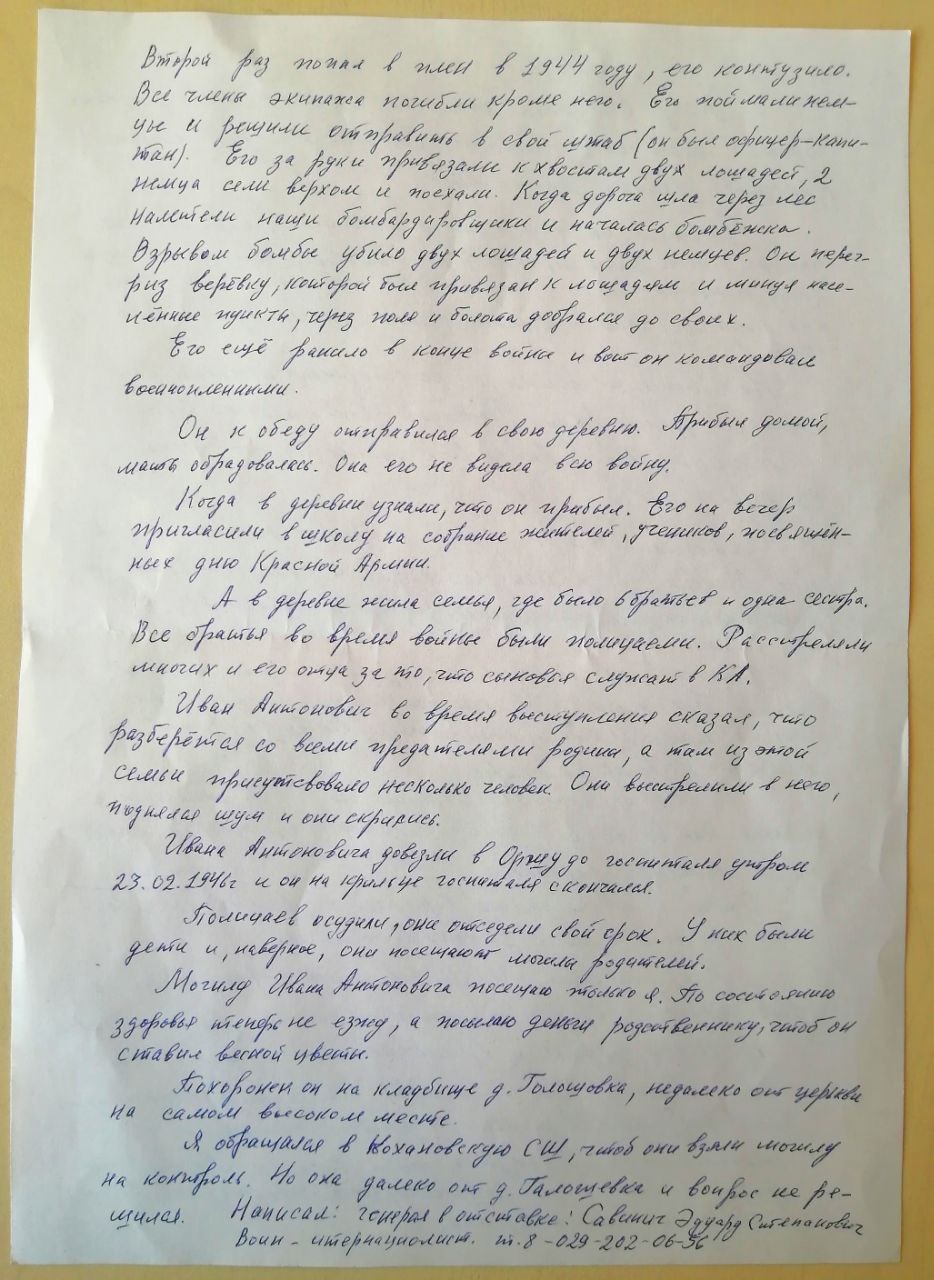 Второй раз попал в плен в 1944 году, его контузило.
Все члены экипажа погибли кроме него. Его поймали нем-
цы и решили отправить в свой штаб (он был офицер-капи-
тан). Его за руки привязали к хвостам двух лошадей, 2
немца сели верхом и поехали. Когда дорога шла через лес
налетели наши бомбардировщики и началась бомбёжка.
Взрывом бомбы убило двух лошадей и двух немцев. Он перег-
рыз верёвку, которой был привязан к лошадям и минуя насе-
лённые пункты, через поля и болота добрался до своих.
Его ещё ранило в конце войны и вот он командовал
военнопленными.
Он к обеду отправился в свою деревню. Прибыл домой,
мать обрадовалась. Она его не видела всю войну.
Когда в деревни узнали, что он прибыл. Его на вечер
пригласили в школу на собрание жителей, учеников, посвящён-
ных дню Красной Армии.
А в деревне жила семья, где было 6 братьев и одна сестра.
Все братья во время войны были полицаеми. Расстреляли
многих и его отца за то, что сыновья служат в КА.
Иван Антонович во время выступления сказал, что
разберётся со всеми предателями родины, а там из этой
семьи присутствовало несколько человек. Они выстрелили в него,
поднялся шум и они скрылись.
Ивана Антоновича довезли в Оршу до госпиталя утром
23.02.1946г и он на крыльце госпиталя скончался.
Полицаев осудили, они отседели свой срок. У них были
дети и, наверное, они посещают могилы родителей.
Могилу Ивана Антоновича посещаю только я. По состоянию
здоровья теперь не езжу, а посылаю деньги родственнику, чтоб он
ставил весной цветы.
Похоронен он на кладбище д. Голощовка, недалеко от церкви
на самом высоком месте.
Я обращался в Кохановскую СШ, чтоб они взяли могилу
на контроль. Но она далеко от д. Галощевка и вопрос не ре-
шился. Написал: генерал в отставке: Савинич Эдуард Степанович
Воин - интернациолист. т. 8-029-202-06-56